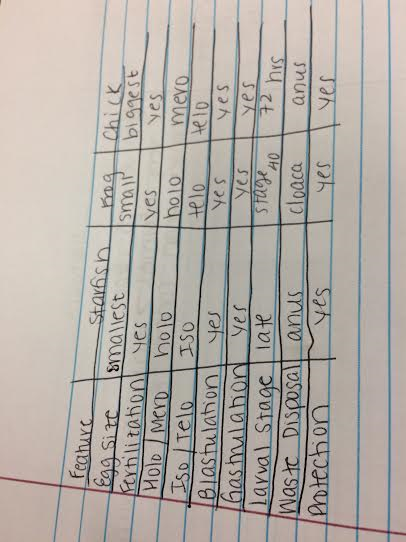 Feature Starfish Frog Chick
Egg Size smallest small biggest
Fertilization yes yes yes
Holo/Mero holo holo mero
Iso/Telo Iso telo telo
Blastulation yes yes yes
Gastrulation yes yes yes
Larval Stage late stage 40 72 hrs
Waste Disposal anus cloaca anus
Protection yes yes yes